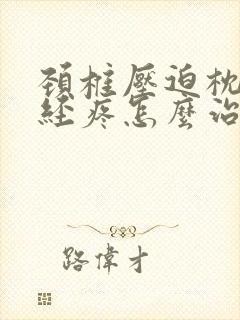 頚椎壓迫枕
經疼怎麼治
路偉才